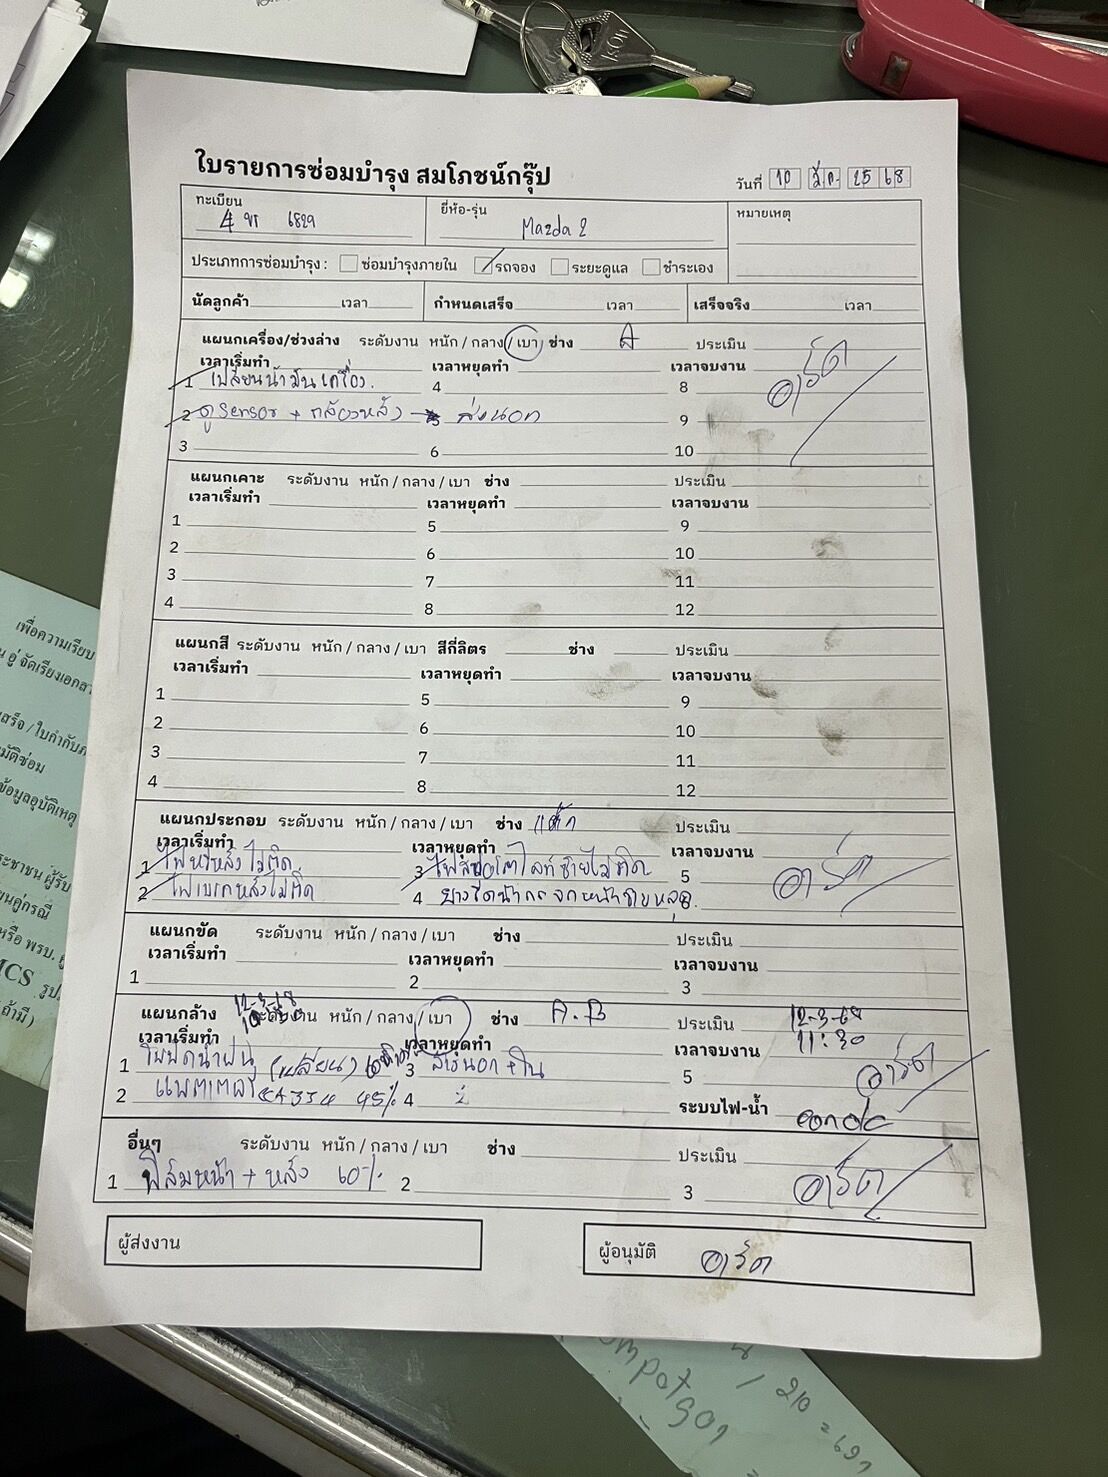 ใบรายการซ่อมบำรุง สมโภชน์กรุ๊ป
วันที่ 10 มี.ค. 2568
ทะเบียน 4 ขร 6829
ยี่ห้อ-รุ่น Mazda 2
หมายเหตุ
ประเภทการซ่อมบำรุง : ซ่อมบำรุงภายใน รถจอง ระยะดูแล ชำระเอง
นัดลูกค้า เวลา กำหนดเสร็จ เวลา เสร็จจริง เวลา
แผนกเครื่อง/ช่วงล่าง ระดับงาน หนัก / กลาง / เบา ช่าง A ประเมิน
เวลาเริ่มทำ เวลาหยุดทำ เวลาจบงาน
1 เปลี่ยนน้ำมันเครื่อง. 4 8 อาร์ต
2 ดู sensor + กล้องหลัง → 5 ส่งนอก 9
3 6 10
แผนกเคาะ ระดับงาน หนัก / กลาง / เบา ช่าง ประเมิน
เวลาเริ่มทำ เวลาหยุดทำ เวลาจบงาน
1 5 9
2 6 10
3 7 11
4 8 12
แผนกสี ระดับงาน หนัก / กลาง / เบา สีกี่ลิตร ช่าง ประเมิน
เวลาเริ่มทำ เวลาหยุดทำ เวลาจบงาน
1 5 9
2 6 10
3 7 11
4 8 12
แผนกประกอบ ระดับงาน หนัก / กลาง / เบา ช่าง ประเมิน
เวลาเริ่มทำ เวลาหยุดทำ เวลาจบงาน
1 ไฟหรี่หลังไม่ติด 3 ไม่ติด 5 อาร์ต
2 ไฟเบรกหลังไม่ติด 4 ยางรีดน้ำกระจกหน้า
แผนกขัด ระดับงาน หนัก / กลาง / เบา ช่าง ประเมิน
เวลาเริ่มทำ เวลาหยุดทำ เวลาจบงาน
1 2 3
แผนกล้าง 12-3-68 ระดับงาน หนัก / กลาง / เบา ช่าง A.B ประเมิน 12-3-68
เวลาเริ่มทำ เวลาหยุดทำ เวลาจบงาน 11:30
1 ใบปัดน้ำฝน (เปลี่ยน) 3 5 อาร์ต
2 แบตเตอรี่ 45% 4 ระบบไฟ-น้ำ
อื่นๆ ระดับงาน หนัก / กลาง / เบา ช่าง ประเมิน
1 ฟิล์มหน้า + หลัง 60% 2 3 อาร์ต
ผู้ส่งงาน
ผู้อนุมัติ อาร์ต
เพื่อความเรียบ
อู่ จัดเรียงเอกสา
สร็จ / ใบกำกับภ
มัติซ่อม
ข้อมูลอุบัติเหตุ
ระชาชน ผู้รับ
ยนคู่กรณี
หรือ พรบ.
MCS รูป
ถ้ามี)